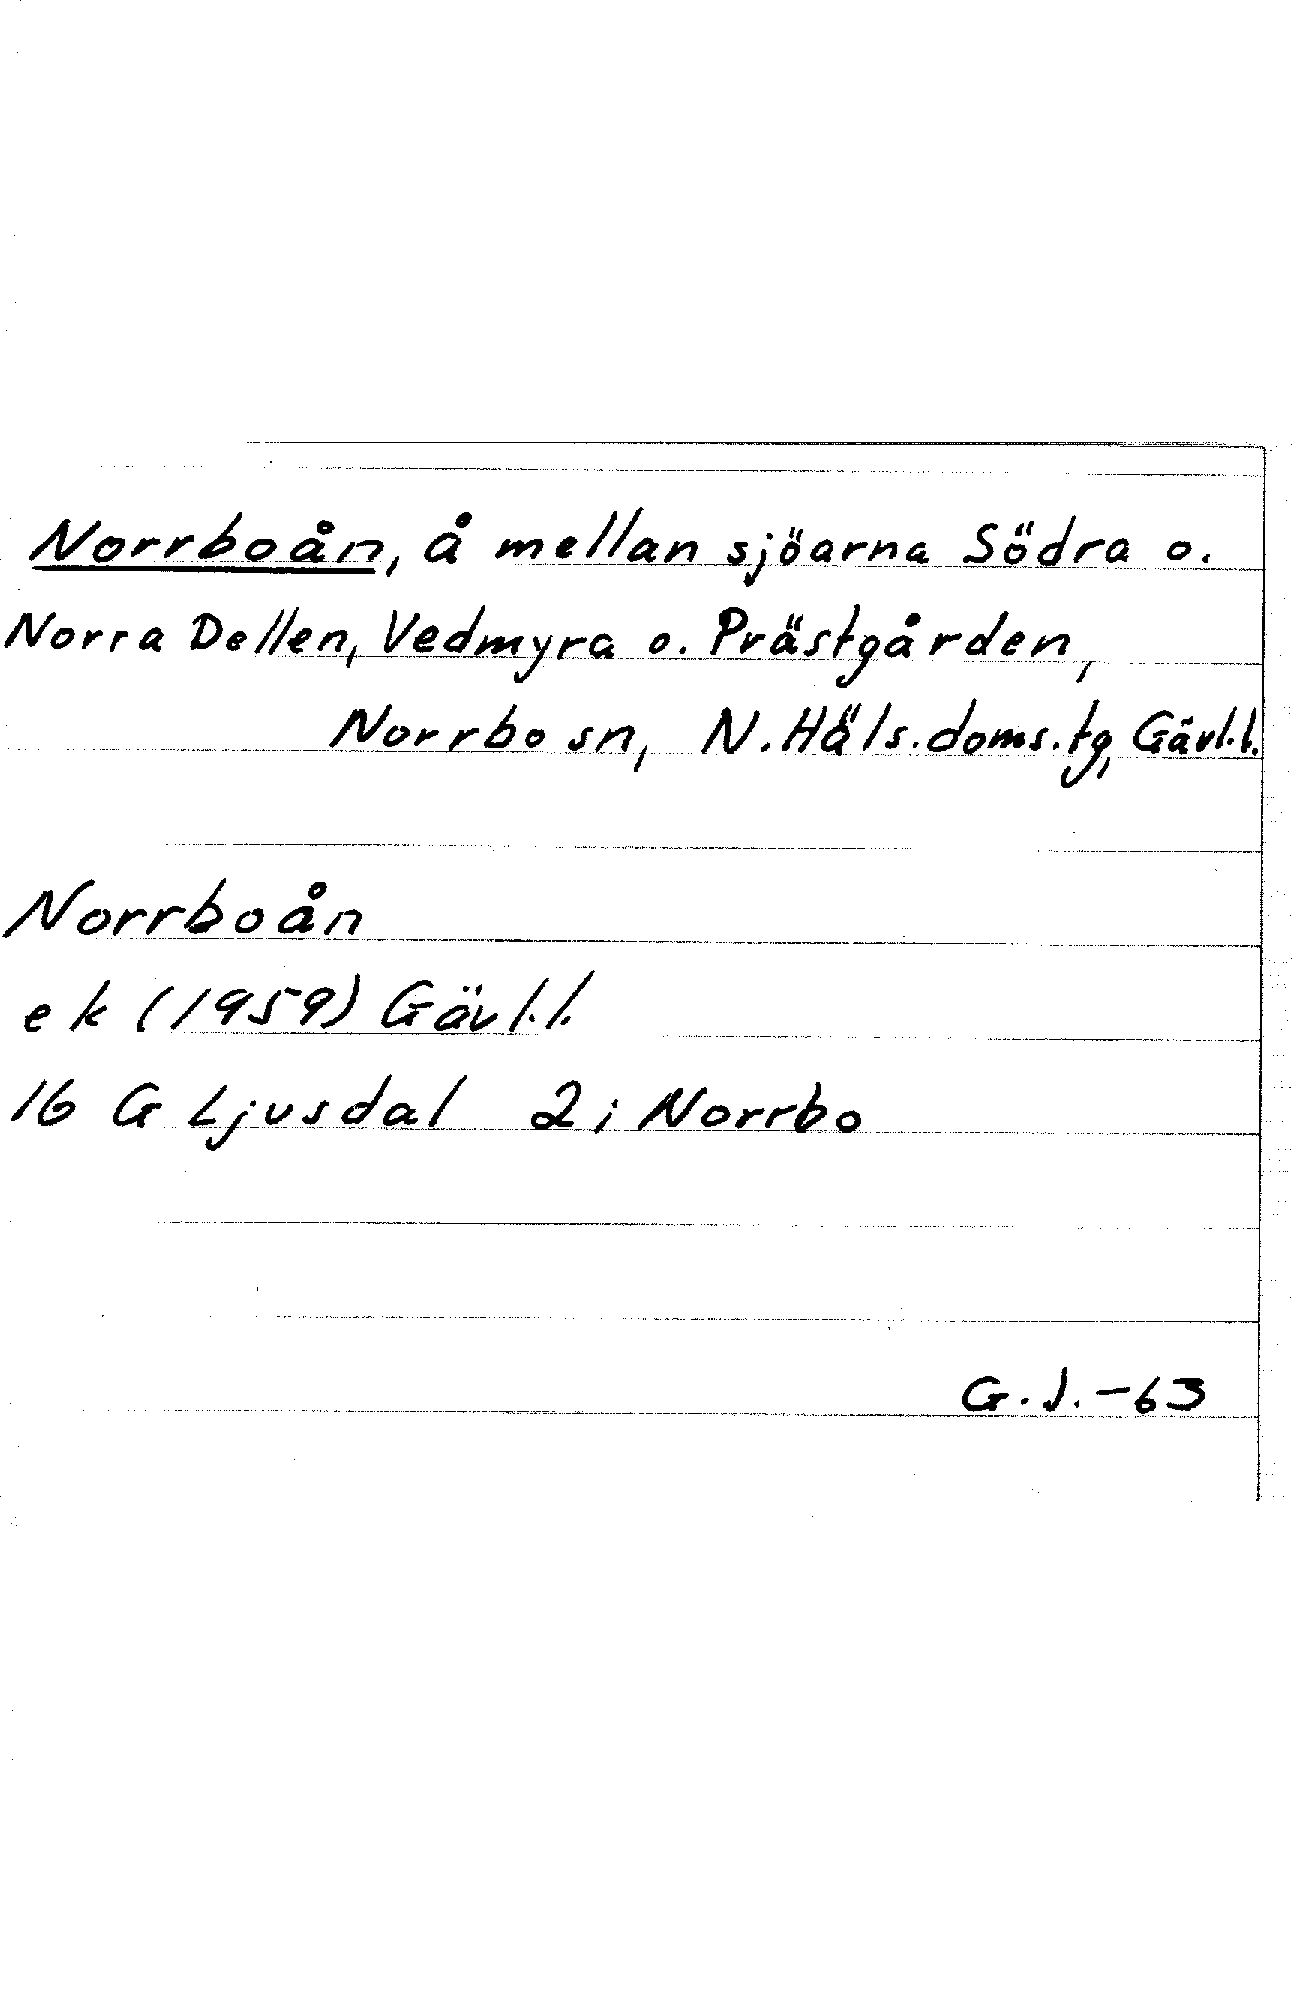 Norrboån, å mellan sjöarna Södra o.
Norra Dellen, Vedmyra o. Prästgården,
Norrbo sn, N. Häls. doms. tg, Gävl. l.
Norrboån
ek (1959) Gävl. l.
16 G Ljusdal 2; Norrbo
G. J. -63